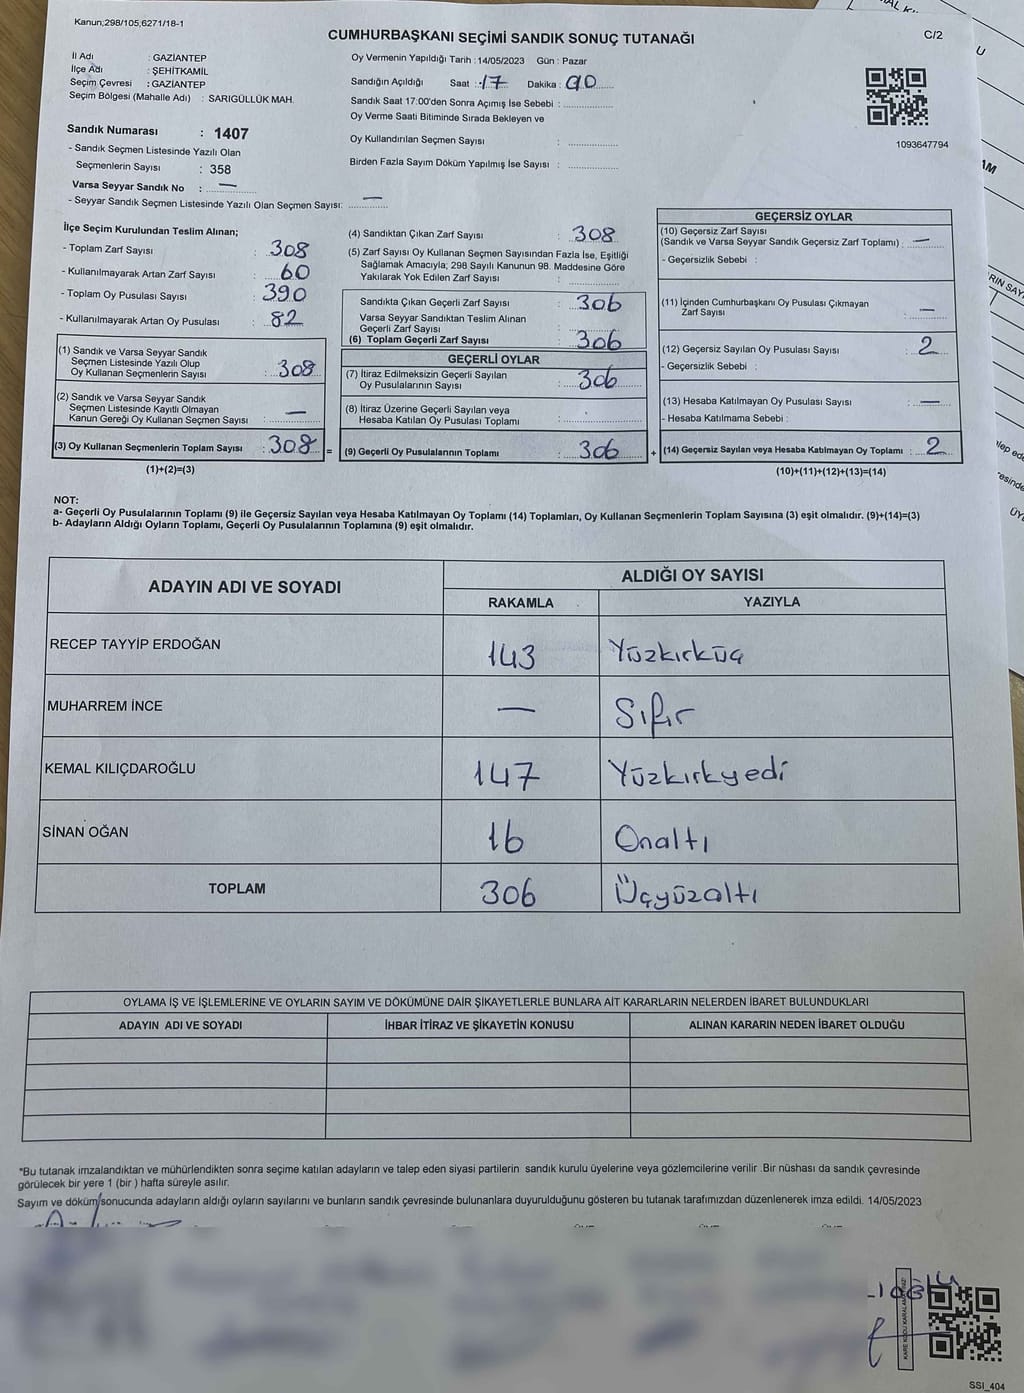 Kanun;298/105,6271/18-1
C/2
CUMHURBAŞKANI SEÇİMİ SANDIK SONUÇ TUTANAĞI
İl Adı : GAZİANTEP
İlçe Adı : ŞEHİTKAMİL
Seçim Çevresi : GAZİANTEP
Seçim Bölgesi (Mahalle Adı) : SARIGÜLLÜK MAH.
Oy Vermenin Yapıldığı Tarih : 14/05/2023 Gün : Pazar
Sandığın Açıldığı Saat : 17 Dakika :
Sandık Saat 17:00'den Sonra Açımış İse Sebebi :
Oy Verme Saati Bitiminde Sırada Bekleyen ve
Oy Kullandırılan Seçmen Sayısı :
Birden Fazla Sayım Döküm Yapılmış İse Sayısı :
1093647794
Sandık Numarası : 1407
- Sandık Seçmen Listesinde Yazılı Olan
Seçmenlerin Sayısı : 358
Varsa Seyyar Sandık No : —
- Seyyar Sandık Seçmen Listesinde Yazılı Olan Seçmen Sayısı: —
İlçe Seçim Kurulundan Teslim Alınan;
- Toplam Zarf Sayısı : 308
- Kullanılmayarak Artan Zarf Sayısı : 60
- Toplam Oy Pusulası Sayısı : 390
- Kullanılmayarak Artan Oy Pusulası : 82
(1) Sandık ve Varsa Seyyar Sandık
Seçmen Listesinde Yazılı Olup
Oy Kullanan Seçmenlerin Sayısı : 308
(2) Sandık ve Varsa Seyyar Sandık
Seçmen Listesinde Kayıtlı Olmayan
Kanun Gereği Oy Kullanan Seçmen Sayısı : —
(3) Oy Kullanan Seçmenlerin Toplam Sayısı : 308 =
(1)+(2)=(3)
(4) Sandıktan Çıkan Zarf Sayısı : 308
(5) Zarf Sayısı Oy Kullanan Seçmen Sayısından Fazla İse, Eşitliği
Sağlamak Amacıyla; 298 Sayılı Kanunun 98. Maddesine Göre
Yakılarak Yok Edilen Zarf Sayısı :
Sandıkta Çıkan Geçerli Zarf Sayısı : 306
Varsa Seyyar Sandıktan Teslim Alınan
Geçerli Zarf Sayısı :
(6) Toplam Geçerli Zarf Sayısı : 306
GEÇERLİ OYLAR
(7) İtiraz Edilmeksizin Geçerli Sayılan
Oy Pusulalarının Sayısı : 306
(8) İtiraz Üzerine Geçerli Sayılan veya
Hesaba Katılan Oy Pusulası Toplamı :
(9) Geçerli Oy Pusulalarının Toplamı : 306 +
GEÇERSİZ OYLAR
(10) Geçersiz Zarf Sayısı
(Sandık ve Varsa Seyyar Sandık Geçersiz Zarf Toplamı) : —
- Geçersizlik Sebebi :
(11) İçinden Cumhurbaşkanı Oy Pusulası Çıkmayan
Zarf Sayısı : —
(12) Geçersiz Sayılan Oy Pusulası Sayısı : 2
- Geçersizlik Sebebi :
(13) Hesaba Katılmayan Oy Pusulası Sayısı : —
- Hesaba Katılmama Sebebi :
(14) Geçersiz Sayılan veya Hesaba Katılmayan Oy Toplamı : 2
(10)+(11)+(12)+(13)=(14)
NOT:
a- Geçerli Oy Pusulalarının Toplamı (9) ile Geçersiz Sayılan veya Hesaba Katılmayan Oy Toplamı (14) Toplamları, Oy Kullanan Seçmenlerin Toplam Sayısına (3) eşit olmalıdır. (9)+(14)=(3)
b- Adayların Aldığı Oyların Toplamı, Geçerli Oy Pusulalarının Toplamına (9) eşit olmalıdır.
ADAYIN ADI VE SOYADI
ALDIĞI OY SAYISI
RAKAMLA YAZIYLA
RECEP TAYYİP ERDOĞAN 143 Yüzkırküç
MUHARREM İNCE — Sıfır
KEMAL KILIÇDAROĞLU 147 Yüzkırkyedi
SİNAN OĞAN 16 Onaltı
TOPLAM 306 Üçyüzaltı
OYLAMA İŞ VE İŞLEMLERİNE VE OYLARIN SAYIM VE DÖKÜMÜNE DAİR ŞİKAYETLERLE BUNLARA AİT KARARLARIN NELERDEN İBARET BULUNDUKLARI
ADAYIN ADI VE SOYADI İHBAR İTİRAZ VE ŞİKAYETİN KONUSU ALINAN KARARIN NEDEN İBARET OLDUĞU
*Bu tutanak imzalandıktan ve mühürlendikten sonra seçime katılan adayların ve talep eden siyasi partilerin sandık kurulu üyelerine veya gözlemcilerine verilir .Bir nüshası da sandık çevresinde
görülecek bir yere 1 (bir ) hafta süreyle asılır.
Sayım ve döküm sonucunda adayların aldığı oyların sayılarını ve bunların sandık çevresinde bulunanlara duyurulduğunu gösteren bu tutanak tarafımızdan düzenlenerek imza edildi. 14/05/2023
SSI_404